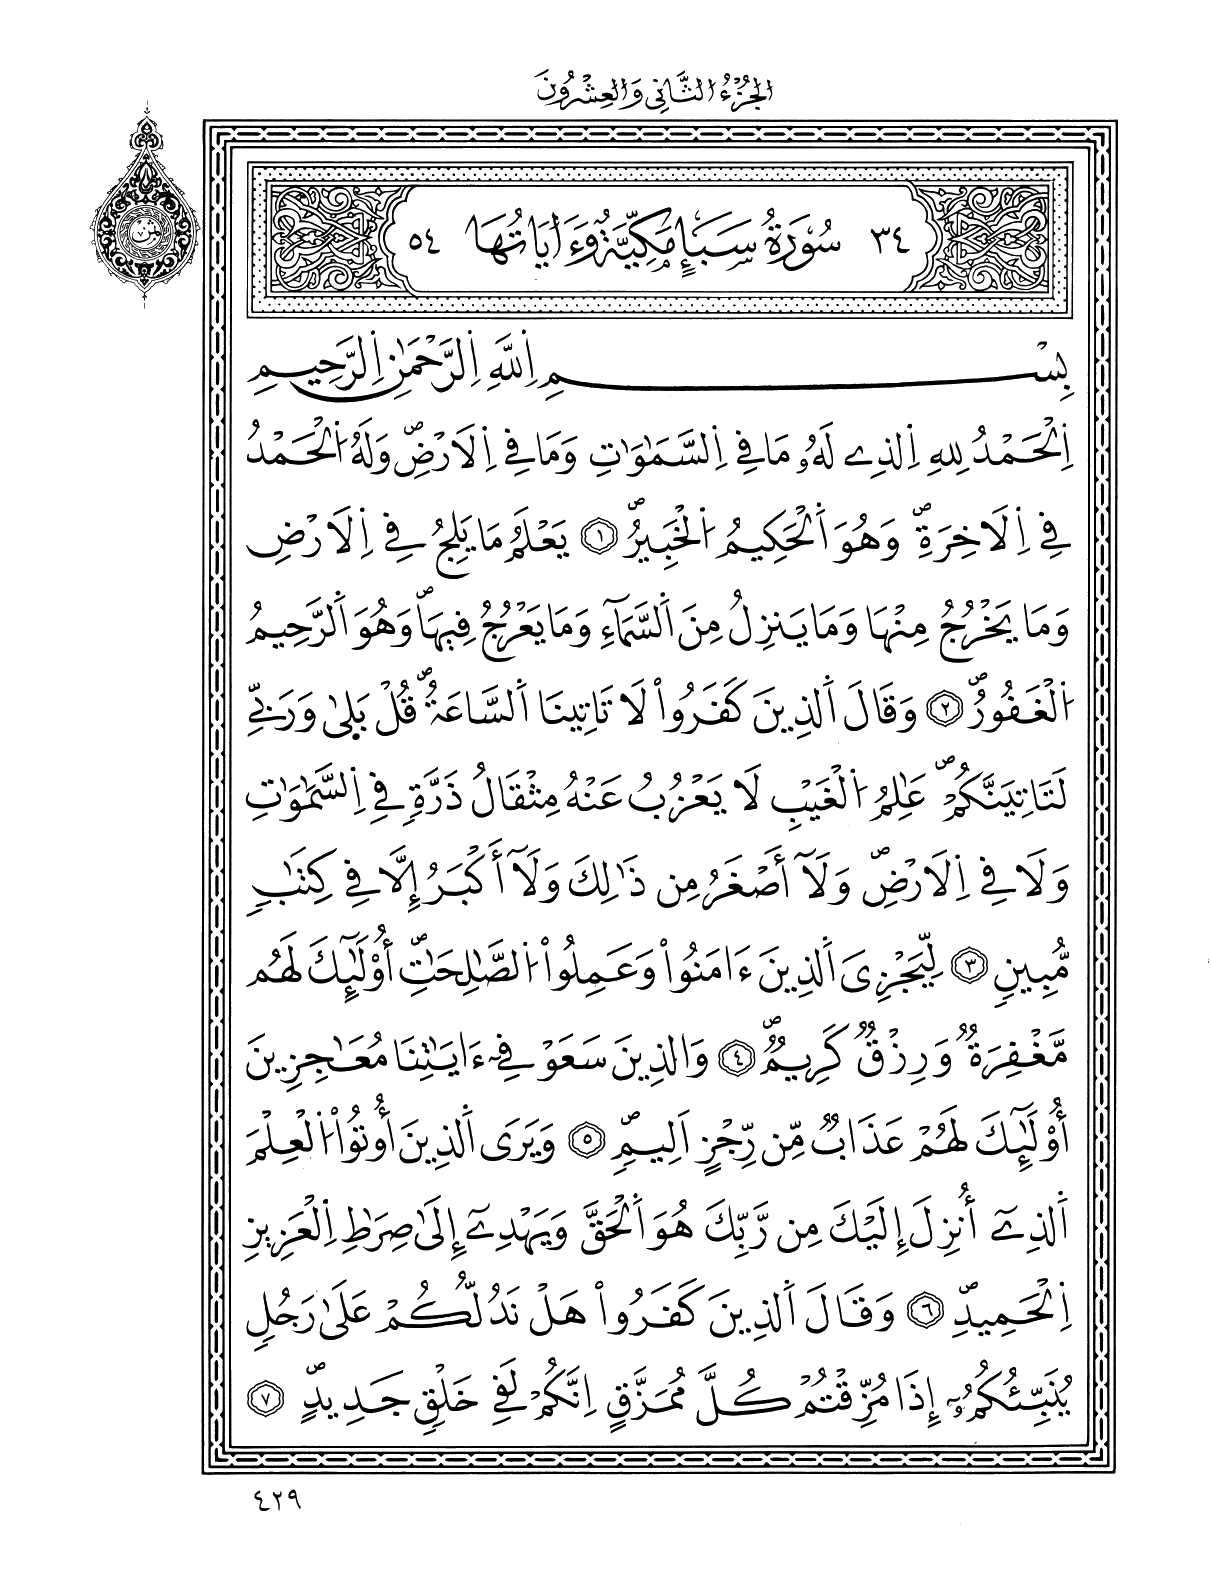 الجزء الثاني والعشرون
حزب
٣٤ سُورَةُ سَبَإٍ مَكِّيَّةٌ وَءَايَاتُهَا ٥٤
بِسْمِ اِ۬للَّهِ اِ۬لرَّحْمَٰنِ اِ۬لرَّحِيمِ
اِ۬لْحَمْدُ لِلهِ اِ۬لذِے لَهُۥ مَا فِے اِ۬لسَّمَٰوَٰتِ وَمَا فِے اِ۬لَارْضِۖ وَلَهُ اُ۬لْحَمْدُ
فِے اِ۬لَاخِرَةِۖ وَهُوَ اَ۬لْحَكِيمُ اُ۬لْخَبِيرُۖ ١ يَعْلَمُ مَا يَلِجُ فِے اِ۬لَارْضِ
وَمَا يَخْرُجُ مِنْهَا وَمَا يَنزِلُ مِنَ اَ۬لسَّمَآءِ وَمَا يَعْرُجُ فِيهَاۖ وَهُوَ اَ۬لرَّحِيمُ
اُ۬لْغَفُورُۖ ٢ وَقَالَ اَ۬لذِينَ كَفَرُواْ لَا تَاتِينَا اَ۬لسَّاعَةُۖ قُلْ بَلَىٰ وَرَبِّے
لَتَاتِيَنَّكُمْۖ عَٰلِمُ اُ۬لْغَيْبِ لَا يَعْزُبُ عَنْهُ مِثْقَالُ ذَرَّةٖ فِے اِ۬لسَّمَٰوَٰتِ
وَلَا فِے اِ۬لَارْضِۖ وَلَآ أَصْغَرُ مِن ذَٰلِكَ وَلَآ أَكْبَرُ إِلَّا فِے كِتَٰبٖ
مُّبِينٖ ٣ لِّيَجْزِيَ اَ۬لذِينَ ءَامَنُواْ وَعَمِلُواْ اُ۬لصَّٰلِحَٰتِۖ أُوْلَٰٓئِكَ لَهُم
مَّغْفِرَةٞ وَرِزْقٞ كَرِيمٞۖ ٤ وَالذِينَ سَعَوْ فِےٓ ءَايَٰتِنَا مُعَٰجِزِينَ
أُوْلَٰٓئِكَ لَهُمْ عَذَابٞ مِّن رِّجْزٍ اَلِيمٖۖ ٥ وَيَرَى اَ۬لذِينَ أُوتُواْ اُ۬لْعِلْمَ
اَ۬لذِےٓ أُنزِلَ إِلَيْكَ مِن رَّبِّكَ هُوَ اَ۬لْحَقَّ وَيَهْدِےٓ إِلَىٰ صِرَٰطِ اِ۬لْعَزِيزِ
اِ۬لْحَمِيدِۖ ٦ وَقَالَ اَ۬لذِينَ كَفَرُواْ هَلْ نَدُلُّكُمْ عَلَىٰ رَجُلٖ
يُنَبِّئُكُمُۥٓ إِذَا مُزِّقْتُمْ كُلَّ مُمَزَّقٍ اِنَّكُمْ لَفِے خَلْقٖ جَدِيدٍۖ ٧
٤٢٩